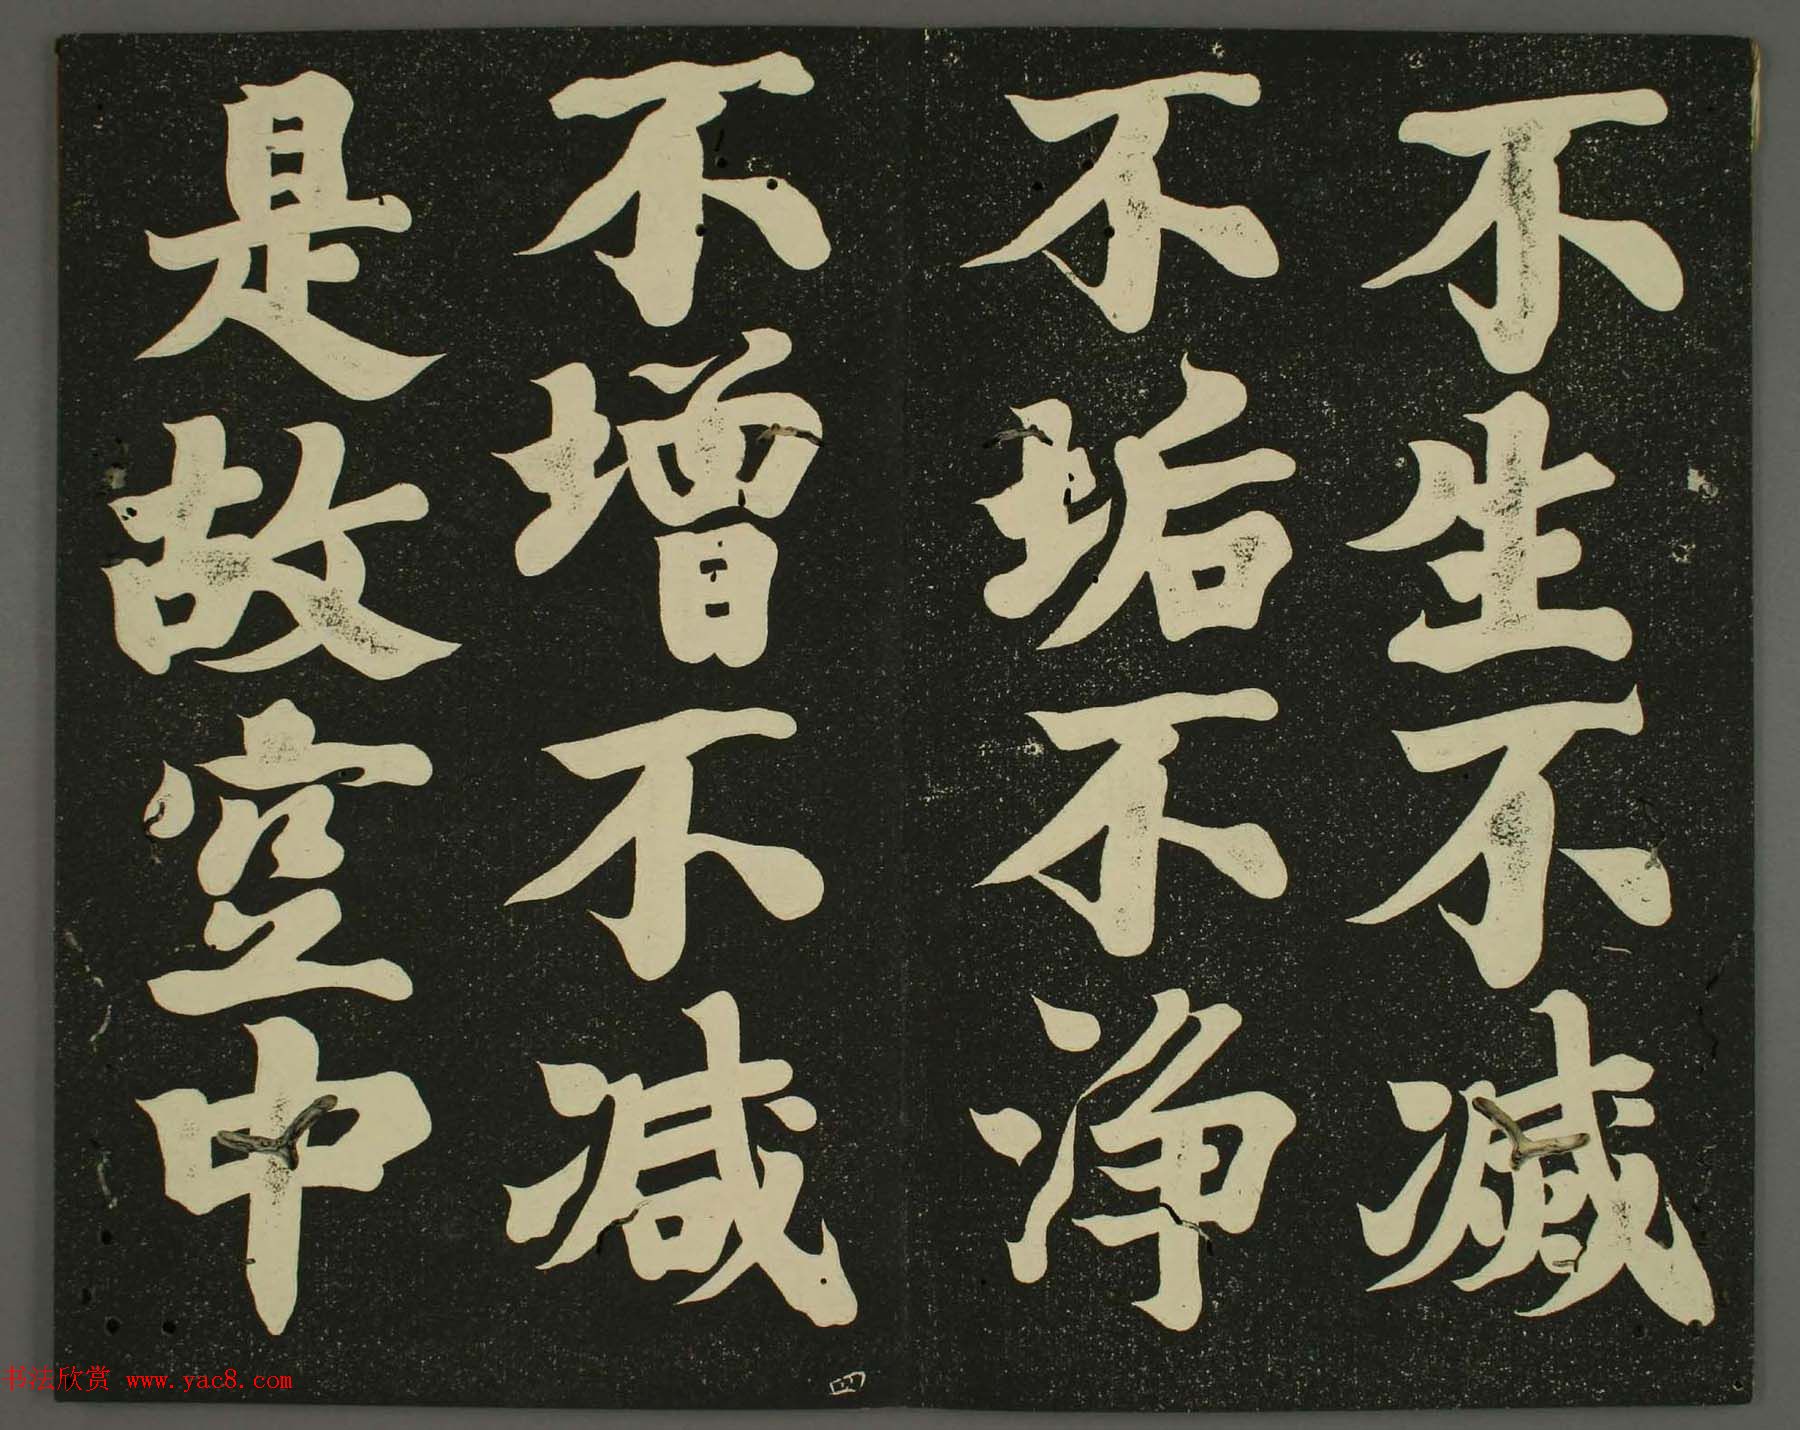 不生不滅
不垢不净
不增不减
是故空中
四
书法欣赏 www.yac8.com